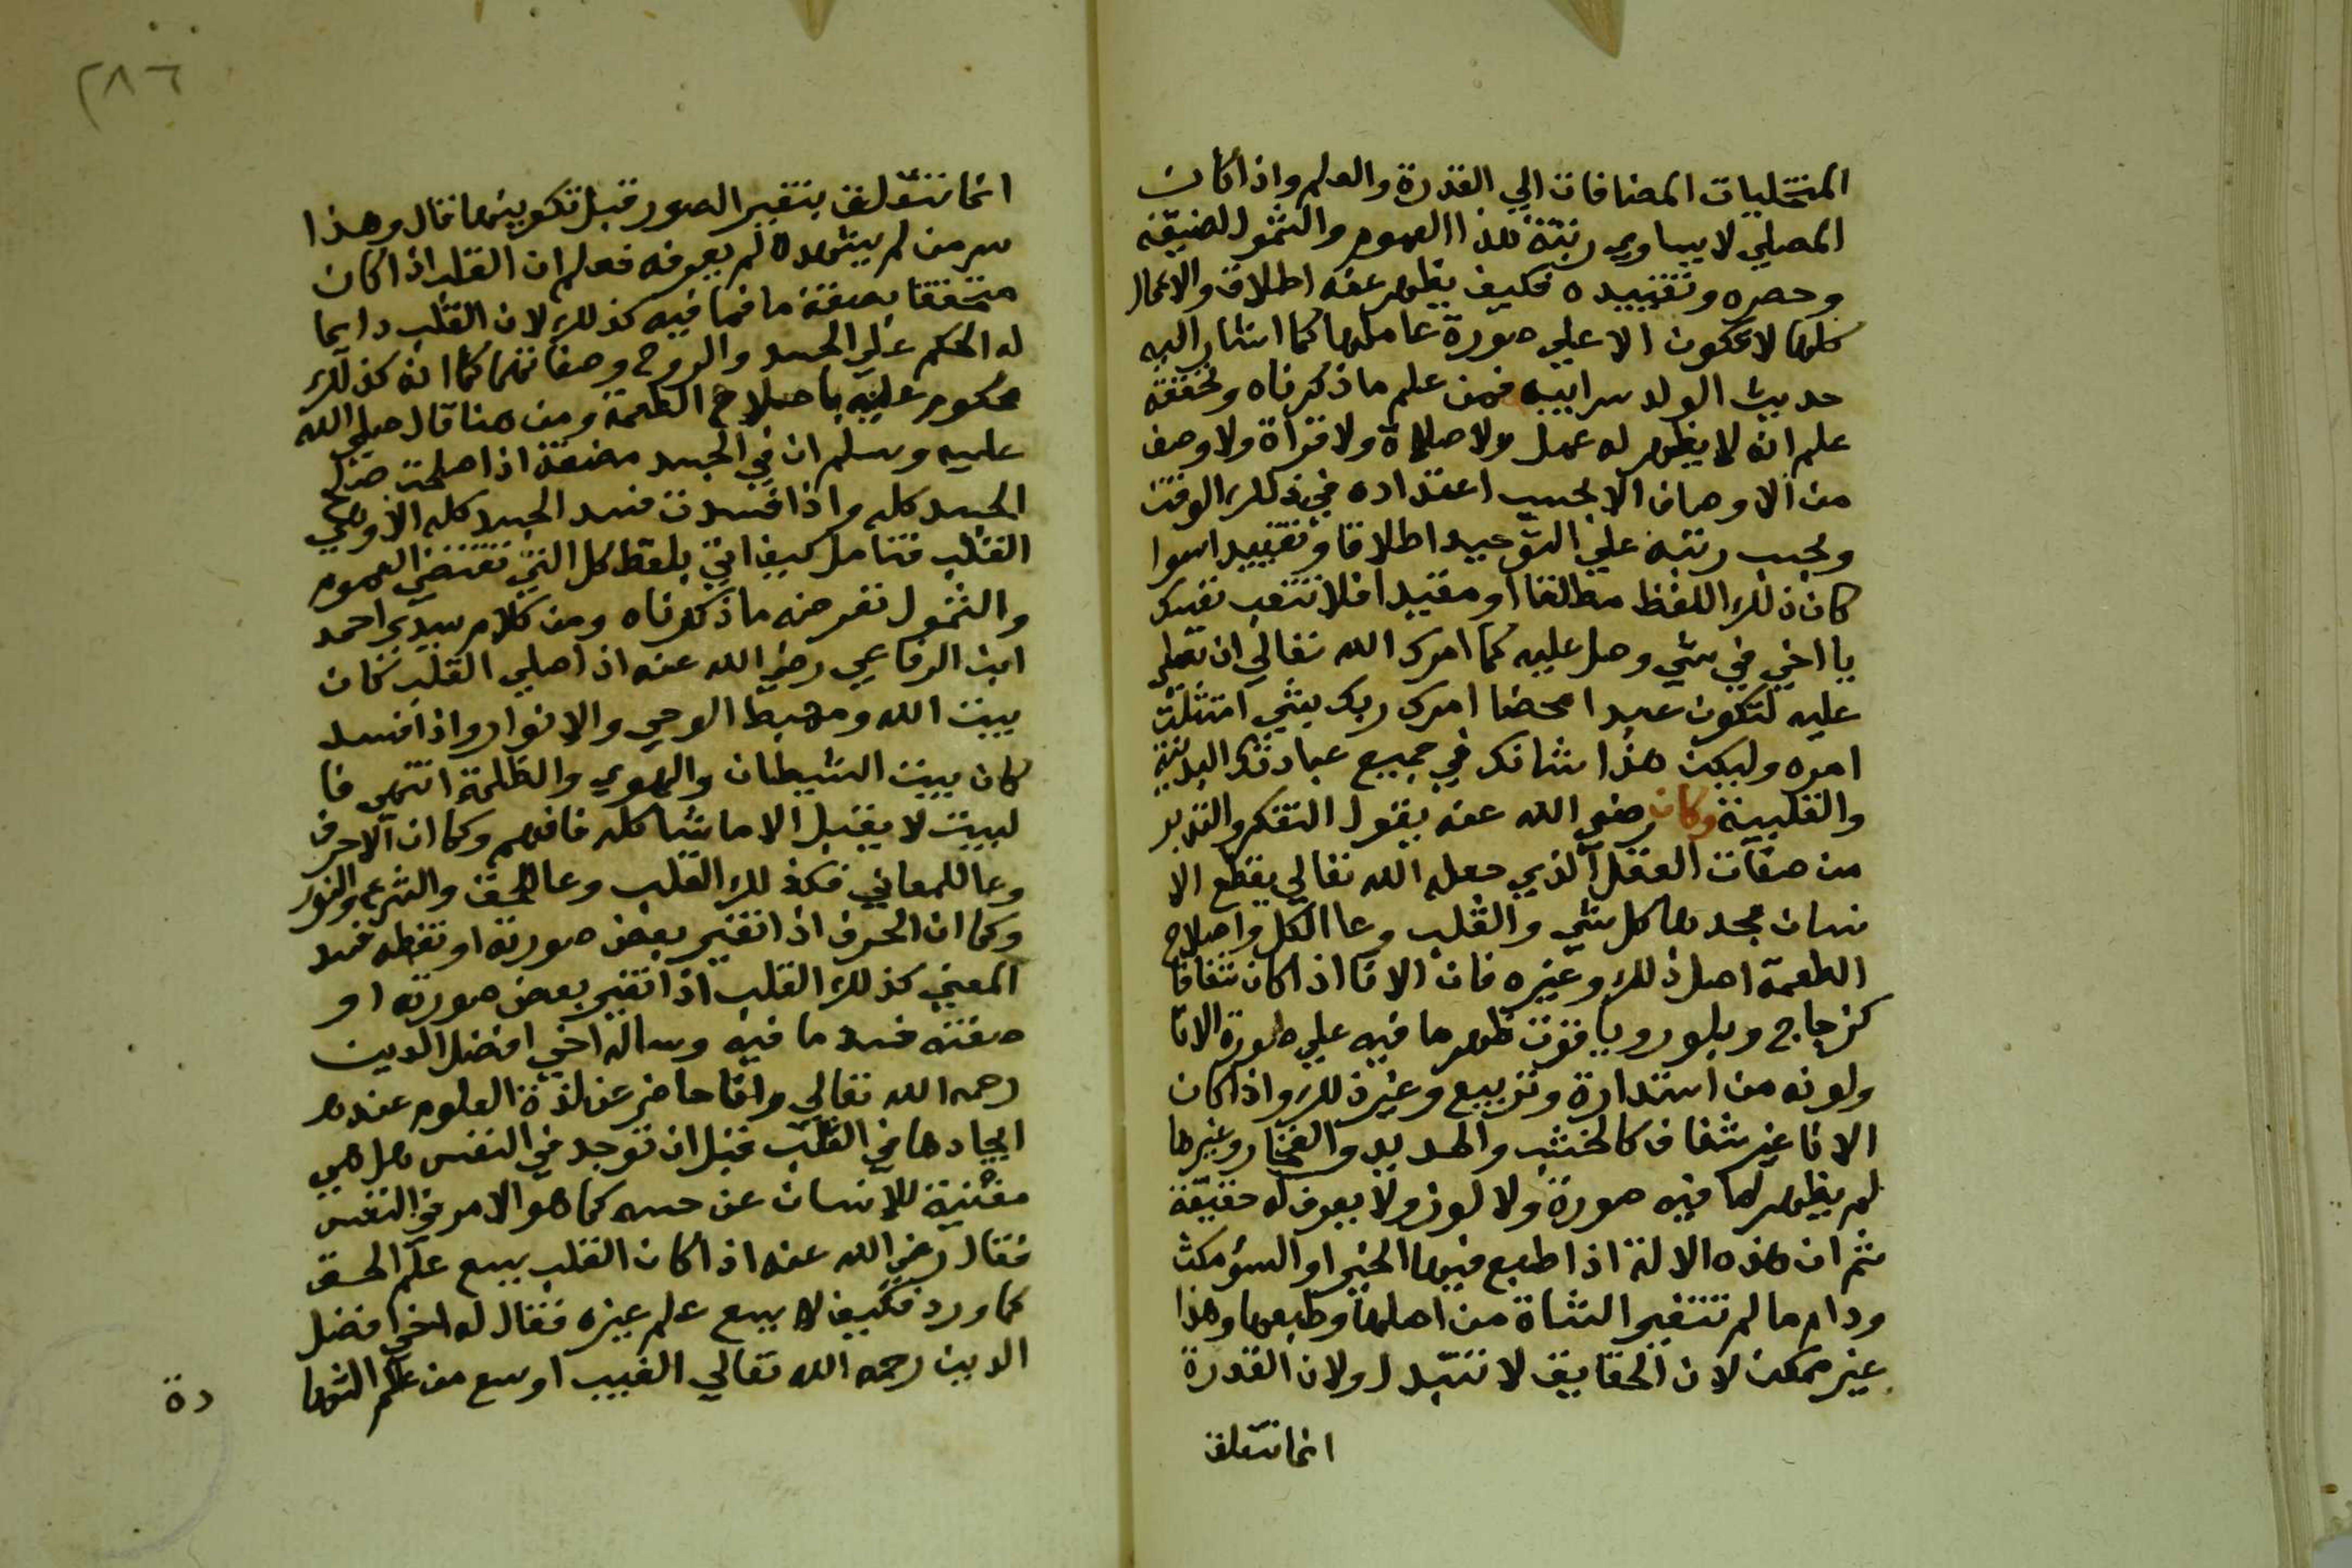 المتجليات المضافات الي القدرة والعلم واذا كان
المصلي لا يساوي رتبته هذا العموم والشمول لضيقه
وحصره وتقييده فكيف يظهر عنه اطلاق والاعمال
كلها لا تكون الا علي صورة عاملها كما اشار اليه
حديث الولد سر ابيه فمن علم ما ذكرناه وتحققه
علم انه لا يظهر له عمل ولا صلاة ولا قراة ولا وصف
من الاوصاف الا بحسب اعتقاده في ذلك الوقت
وبحسب رتبته علي التوحيد اطلاقا وتقييدا سوا
كان ذلك اللفظ مطلقا او مقيدا فلا تتعب نفسك
يا اخي في شي وصل عليه كما امرك الله تعالي ان تصلي
عليه لتكون عبدا محضا امرك ربك بشي امتثلت
امره وليكن هذا شانك في جميع عباداتك البدنية
والقلبية وكان رضي الله عنه يقول التفكر والتدبر
من صفات العقل الذي جعله الله تعالي يقطع الا
نسان بحدها كل شي والقلب وعا الكل واصلاح
الطعمة اصل ذلك وغيره فان الانا اذا كان شفافا
كزجاج وبلور وياقوت ظهر ما فيه علي صورة الانا
ولونه من استدارة وتربيع وغير ذلك واذا كان
الانا غير شفاف كالخشب والحديد والفخار وغيرها
لم يظهر لما فيه صورة ولا لون ولا يعرف له حقيقة
ثم ان هذه الالة اذا طبع فيها الخير او السؤ مكث
ودام ما لم تتغير النشاة من اصلها وطبعها وهذا
غير ممكن لان الحقايق لا تتبدل ولان القدرة
انما تتعلق
٢٨٦
انما تتعلق بتغير الصور قبل تكوينها قال وهذا
سر من لم يشهده لم يعرفه فعلم ان القلب اذا كان
متحققا بصفة ما فما فيه كذلك لان القلب دايما
له الحكم علي الجسد والروح وصفاتهما كما انه كذلك
محكوم عليه باصلاح الطعمة ومن هنا قال صلي الله
عليه وسلم ان في الجسد مضغة اذا صلحت صلح
الجسد كله واذا فسدت فسد الجسد كله الا وهي
القلب فتامل كيف اتي بلفظ كل التي تقتضي العموم
والشمول تعرف منه ما ذكرناه ومن كلام سيدي احمد
ابن الرفاعي رضي الله عنه اذا صلح القلب كان
بيت الله ومهبط الوحي والانوار واذا فسد
كان بيت الشيطان والهوي والظلمة انتهي فا
لبيت لا يقبل الا ما شاكله فافهم وكما ان الاحرف
وعا للمعاني فكذلك القلب وعا للحق والشرع والنور
وكما ان الحرف اذا تغير بعض صورته او نقطه فسد
المعني كذلك القلب اذا تغير بعض صورته او
صفته فسد ما فيه وساله اخي افضل الدين
رحمه الله تعالي وانا حاضر عن لذة العلوم عند
ايجادها في القلب قبل ان توجد في النفس هل هي
مفنية للانسان عن حسه كما هو الامر في النفس
فقال رضي الله عنه اذا كان القلب يسع علم الحق
كما ورد فكيف لا يسع علم غيره فقال له اخي افضل
الدين رحمه الله تعالي الغيب اوسع من علم الشها
دة